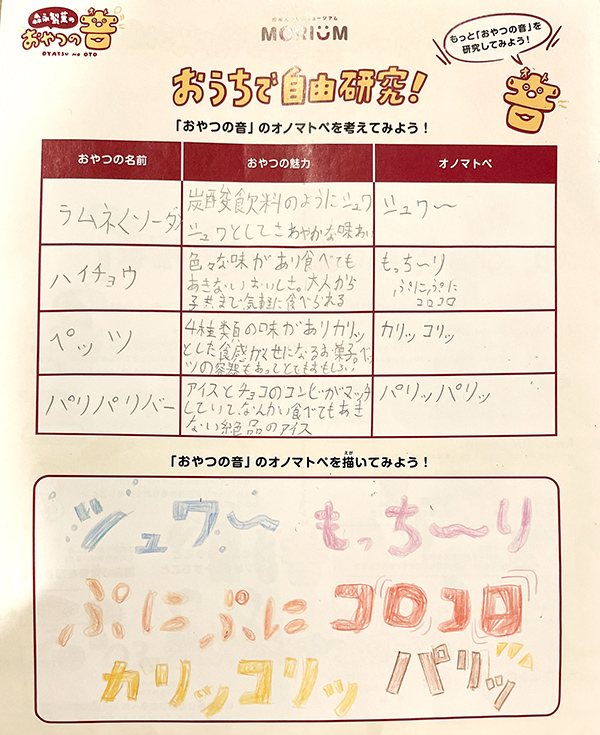 森永製菓の
おやつの音
OYATSU no OTO
MORIUM
もっと「おやつの音」を
研究してみよう!
おうちで自由研究!
「おやつの音」のオノマトペを考えてみよう!
おやつの名前 おやつの魅力 オノマトペ
ラムネくソーダ 炭酸飲料のようにジュワ ジュワ〜
ジュワとしてさわやかな味わい
ハイチョウ 色々な味があり食べても もっち〜り
あきないおいしさ。大人から ぷにぷに
子共まで気軽に食べられる コロコロ
ペッツ 4種類の味がありカリッ カリッ コリッ
とした食感がくせになるお菓子。ペッ
ツの容器もあってとてもおもしい
パリパリバー アイスとチョコのコンビがマッチ パリッパリッ
していて、なんかい食べてもあき
ない絶品のアイス
「おやつの音」のオノマトペを描いてみよう!
ジュワ〜 もっち〜り
ぷにぷに コロコロ
カリッコリッ パリッ